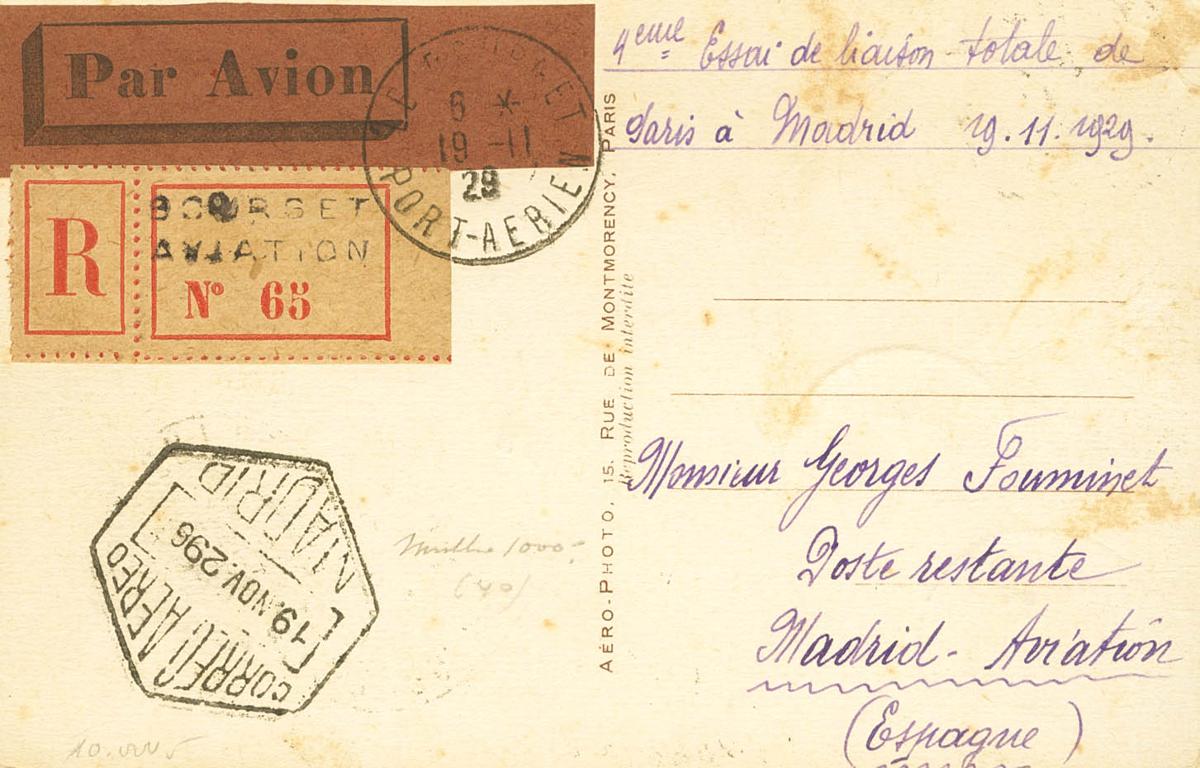 Par Avion
LE BOURGET
6 *
19 -11
29
PORT-AERIEN
R
BOURGET
AVIATION
Nº 65
4eme Essai de liaison totale de
Paris à Madrid 19.11.1929.
AÉRO-PHOTO, 15, RUE DE MONTMORENCY, PARIS
Reproduction interdite
Monsieur Georges Fouminet
Poste restante
Madrid - Aviation
(Espagne)
CORREO AEREO
19.NOV.296
MADRID
1000-
(40)